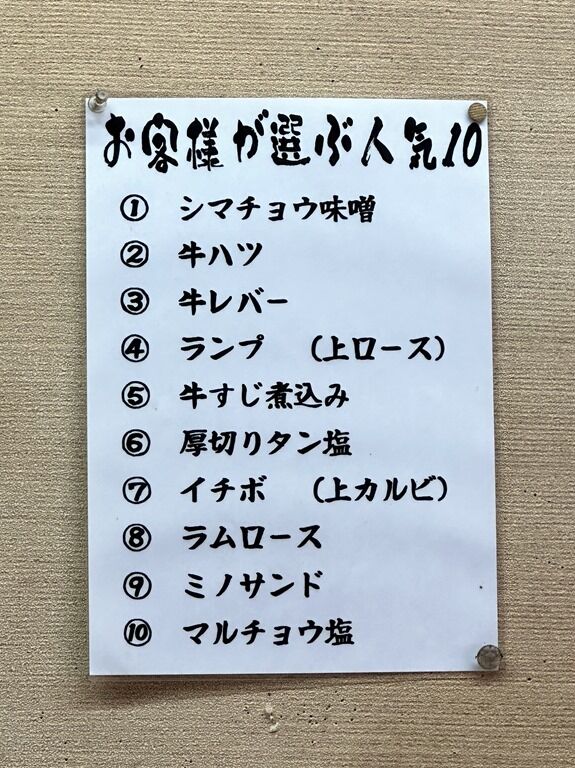 お客様が選ぶ人気10
① シマチョウ味噌
② 牛ハツ
③ 牛レバー
④ ランプ （上ロース）
⑤ 牛すじ煮込み
⑥ 厚切りタン塩
⑦ イチボ （上カルビ）
⑧ ラムロース
⑨ ミノサンド
⑩ マルチョウ塩